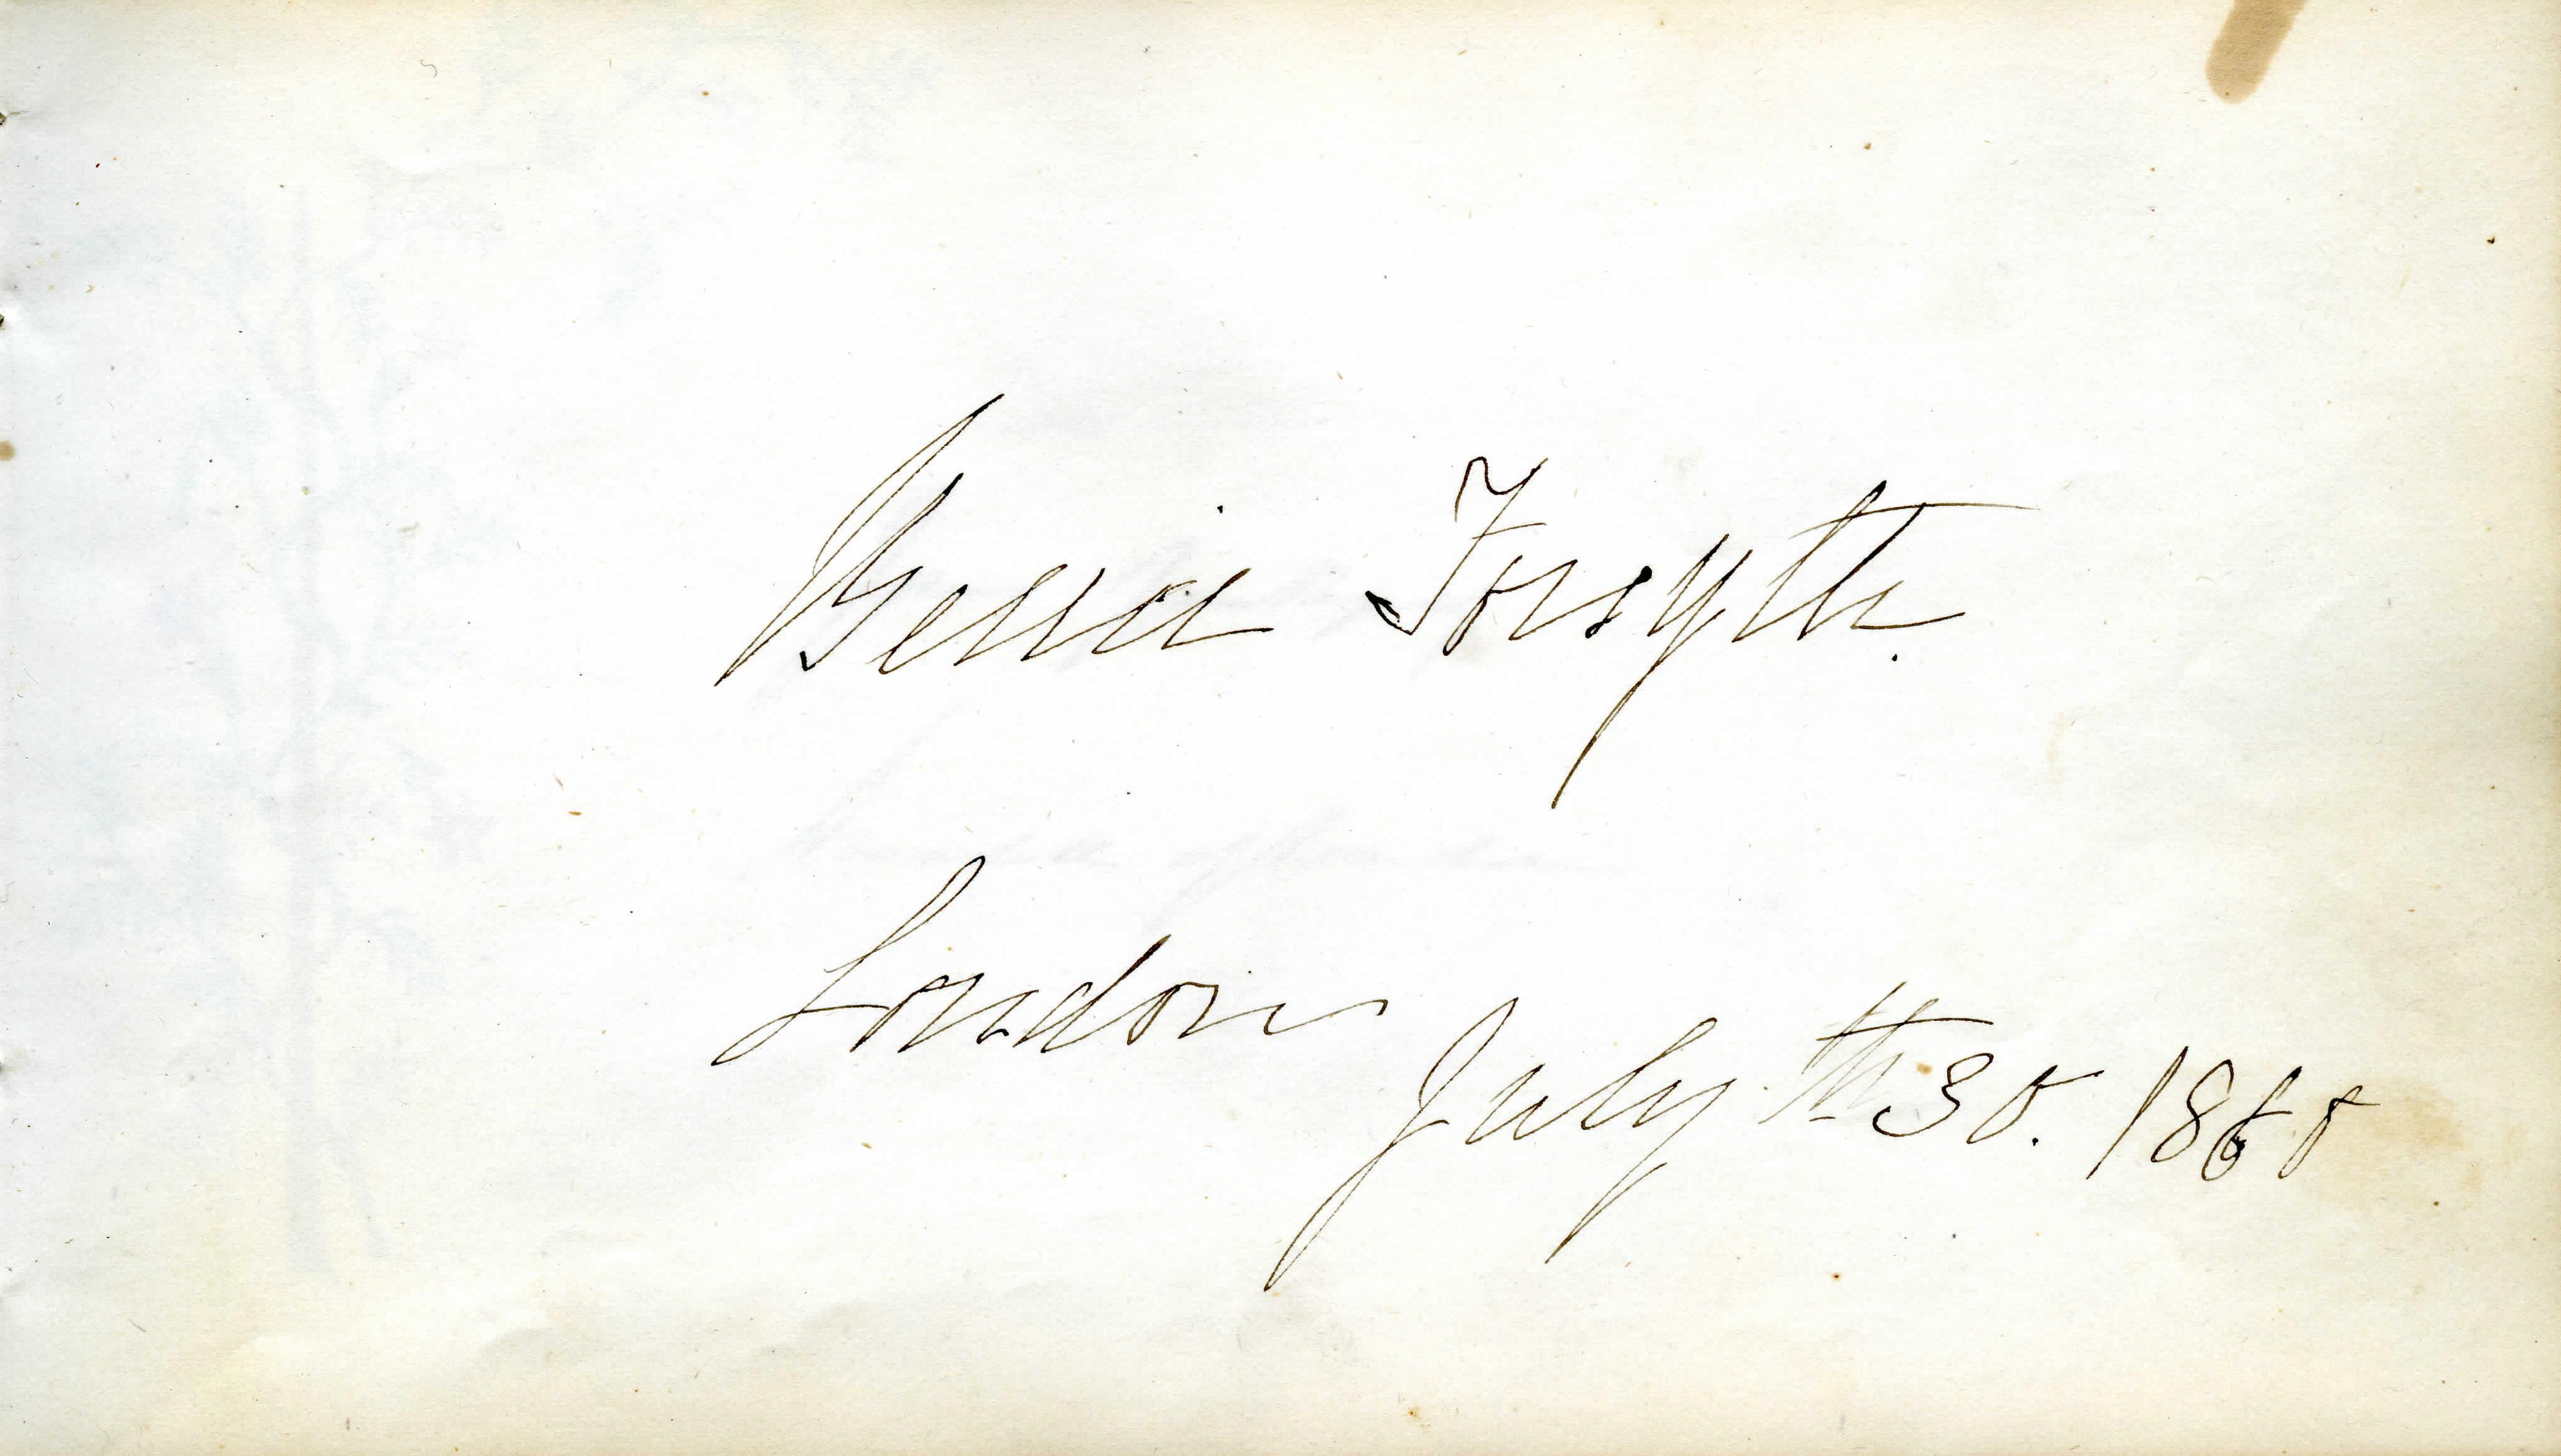 Bessie Forsyth.
London
July th 30. 1860